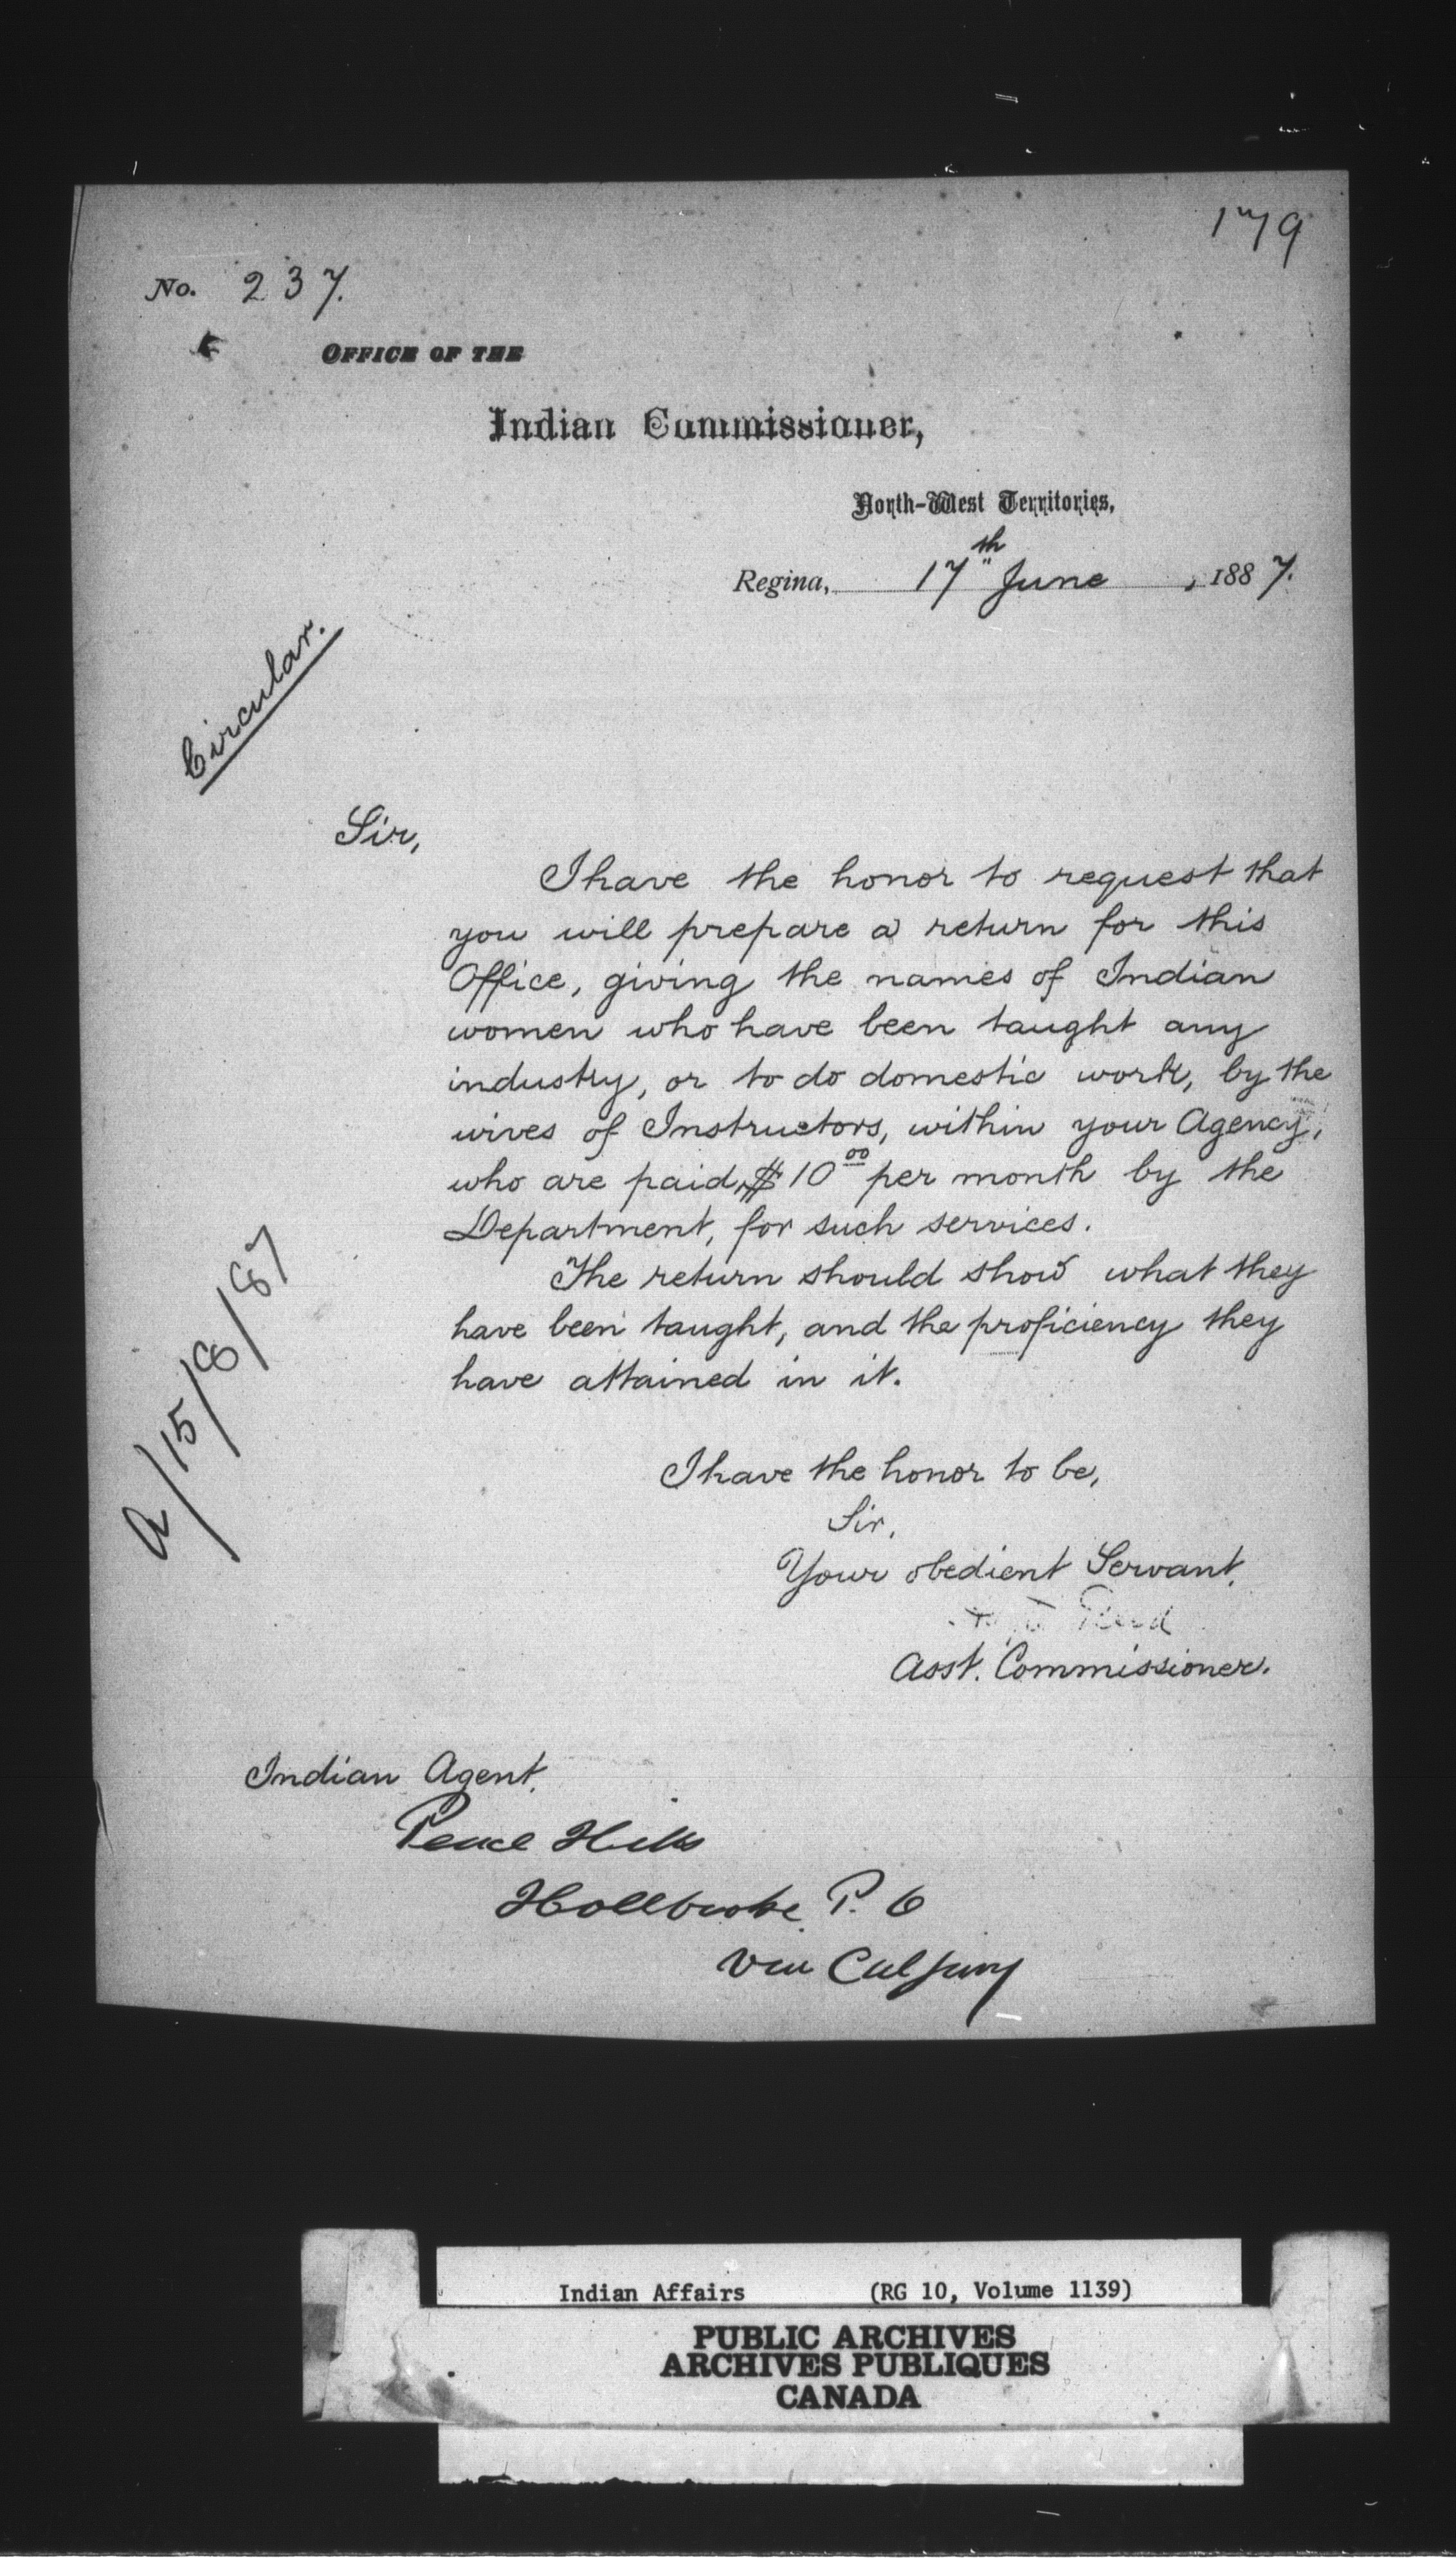 179
No. 237.
OFFICE OF THE
Indian Commissioner,
North-West Territories,
Regina, 17th June, 1887.
Circular.
Sir,
I have the honor to request that
you will prepare a return for this
Office, giving the names of Indian
women who have been taught any
industry, or to do domestic work, by the
wives of Instructors, within your Agency,
who are paid, $10 00 per month by the
Department, for such services.
The return should show what they
have been taught, and the proficiency they
have attained in it.
a/15/8/87
I have the honor to be,
Sir,
Your obedient Servant,
Reed
Asst. Commissioner.
Indian Agent.
Peace Hills
Hollbroke P. O
via Calgary
Indian Affairs (RG 10, Volume 1139)
PUBLIC ARCHIVES
ARCHIVES PUBLIQUES
CANADA